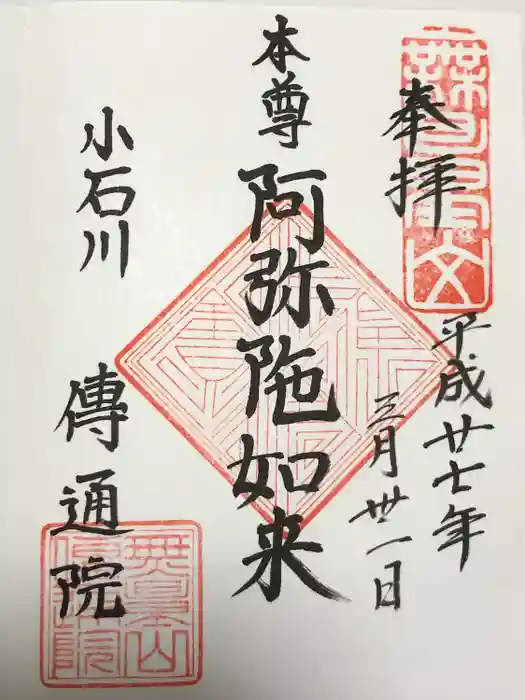 奉拝
平成廿七年
三月卅一日
本尊
阿弥陀如来
小石川
傳通院
無量山
傳通院